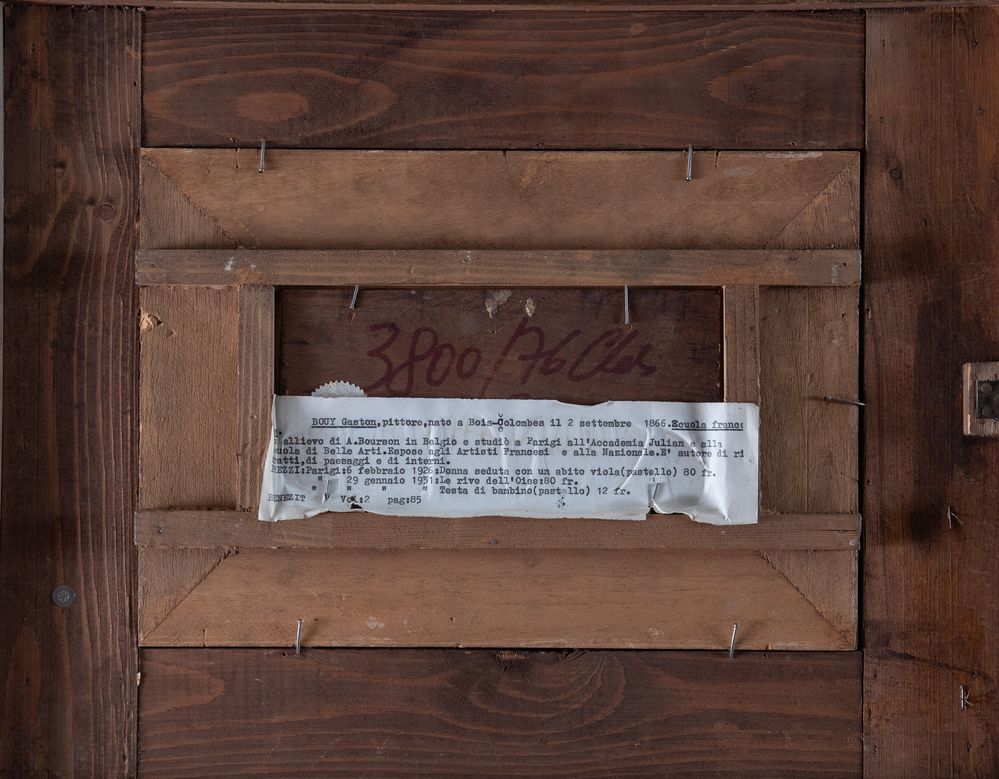 3800/76
BOUY Gaston,pittore,nato a Bois-Colombes il 2 settembre 1866.Scuola france
allievo di A.Bourson in Belgio e studiò a Parigi all'Accademia Julian e alla
uola di Belle Arti.Espose agli Artisti Francesi e alla Nazionale.E' autore di ri
ratti,di paesaggi e di interni.
REZZI:Parigi:6 febbraio 1926:Donna seduta con un abito viola(pastello) 80 fr.
" " 29 gennaio 1931:Le rive dell'Oise:80 fr.
" " " Testa di bambino(pastello) 12 fr.
BENEZIT Vol:2 pag:85